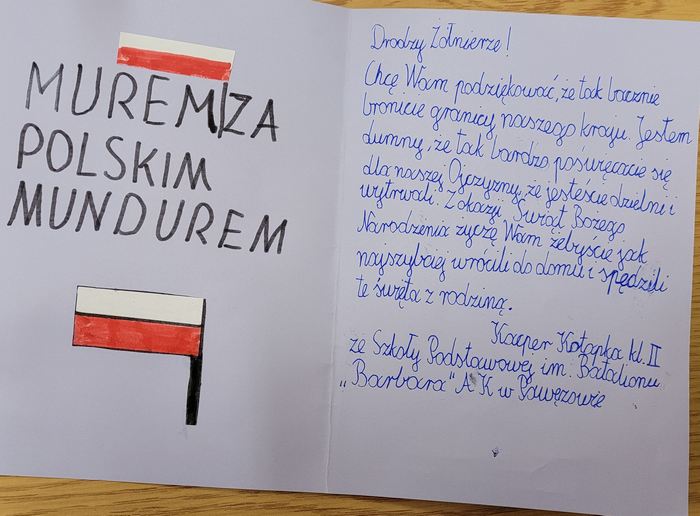 MUREM ZA
POLSKIM
MUNDUREM
Drodzy Żołnierze!
Chcę Wam podziękować, że tak bacznie
bronicie granicy naszego kraju. Jestem
dumny, że tak bardzo poświęcacie się
dla naszej Ojczyzny, że jesteście dzielni i
wytrwali. Z okazji Świąt Bożego
Narodzenia życzę Wam żebyście jak
najszybciej wrócili do domu i spędzili
te święta z rodziną.
Kacper Kołapka kl. II
ze Szkoły Podstawowej im. Batalionu
„Barbara" AK w Pawęzowie